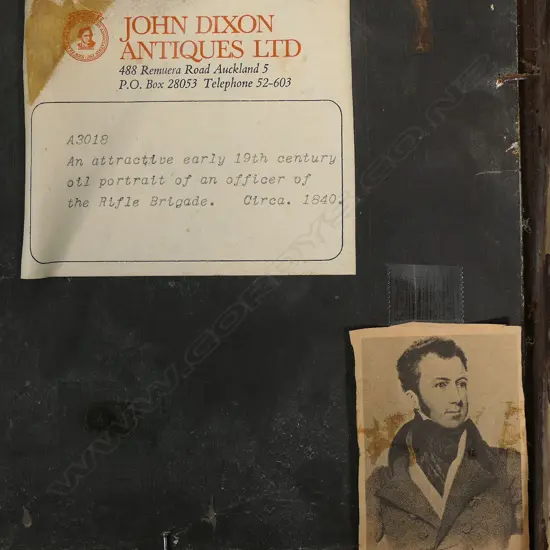 JOHN DIXON
ANTIQUES LTD
488 Remuera Road Auckland 5
P.O. Box 28053 Telephone 52-603
A3018
An attractive early 19th century
oil portrait of an officer of
the Rifle Brigade. Circa. 1840.